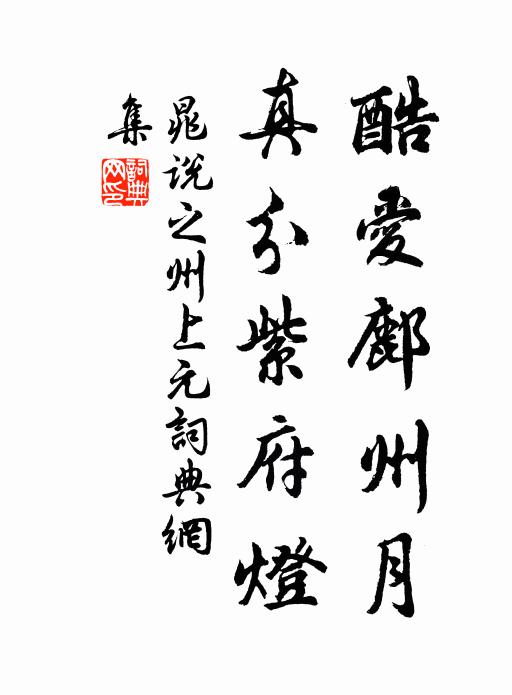 酷愛鄜州月
真分紫府燈
晁說之州上元詞典網
集
詞典網印